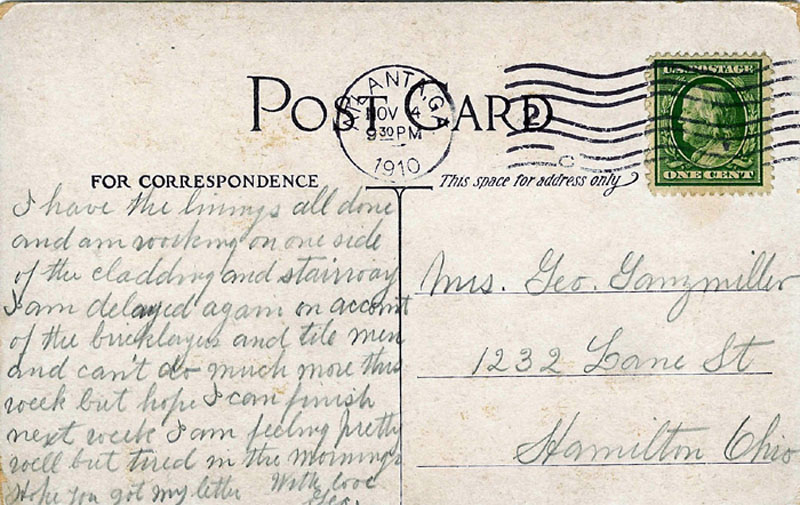 POST CARD
ATLANTA, GA
NOV 4
9 30 PM
1910
2
U.S. POSTAGE
ONE CENT
FOR CORRESPONDENCE
This space for address only
I have the linings all done
and am working on one side
of the cladding and stairway
I am delayed again on account
of the bricklayers and tile men
and can't do much more this
week but hope I can finish
next week I am feeling pretty
well but tired in the mornings
Hope you got my letter With love
Geo.
Mrs. Geo. Ganzmiller
1232 Lane St
Hamilton Ohio